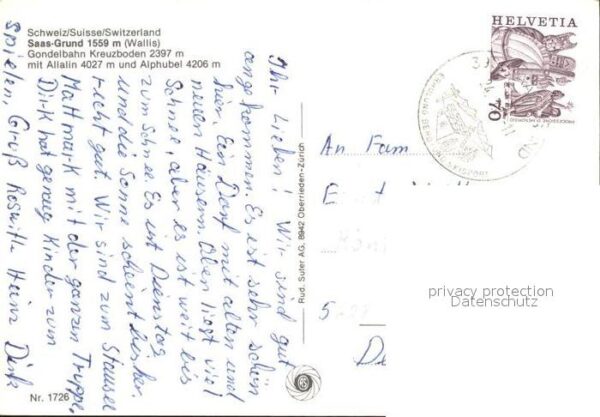 Schweiz/Suisse/Switzerland
Saas-Grund 1559 m (Wallis)
Gondelbahn Kreuzboden 2397 m
mit Allalin 4027 m und Alphubel 4206 m
Ihr Lieben! Wir sind gut
angekommen. Es ist sehr schön
hier. Ein Dorf mit alten und
neuen Häusern. Oben liegt viel
Schnee, aber es ist weit bis
zum Schnee. Es ist Dienstag
und die Sonne scheint bisher
recht gut. Wir sind zum Stausee
Mattmark mit der ganzen Truppe.
Dirk hat genug Kinder zum
spielen. Gruß Roswith Heinz Dirk
Nr. 1726
Rud. Suter AG, 8942 Oberrieden-Zürich
HELVETIA
70
An Fam
privacy protection
Datenschutz